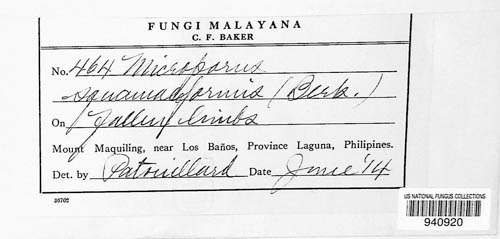 FUNGI MALAYANA
C. F. BAKER
No. 464 Microporus
squamaeformis (Berk.)
On Fallen limbs
Mount Maquiling, near Los Baños, Province Laguna, Philipines.
Det. by Patouillard Date June '14
36702
US NATIONAL FUNGUS COLLECTIONS
940920